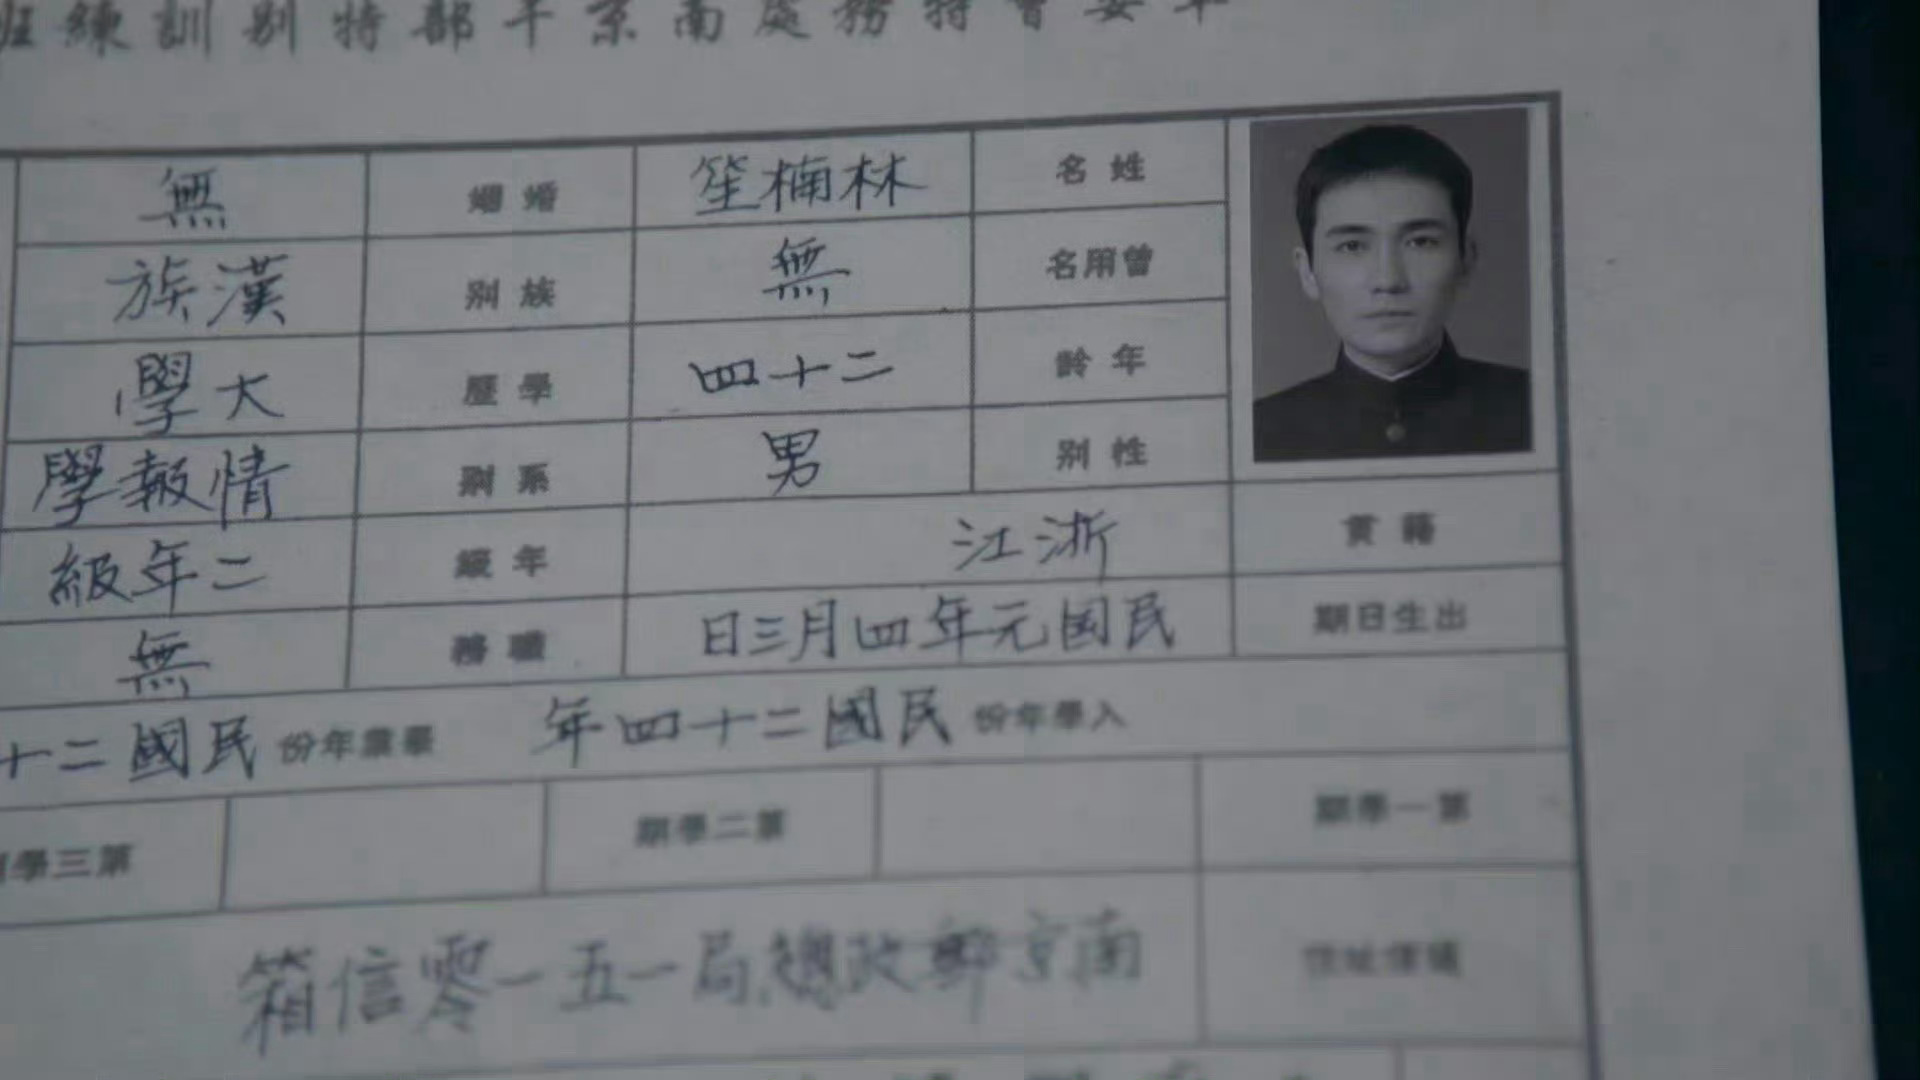 軍委會特務處南京干部特别訓練班
姓名 林楠笙 婚姻 無
曾用名 無 族别 漢族
年齡 二十四 學歷 大學
性别 男 系别 情報學
籍貫 浙江 年級 二年級
出生日期 民國元年四月三日 職務 無
入學年份 民國二十四年 畢業年份 民國二十
第一學期 第二學期 第三學
南京郵政總局一五一零信箱